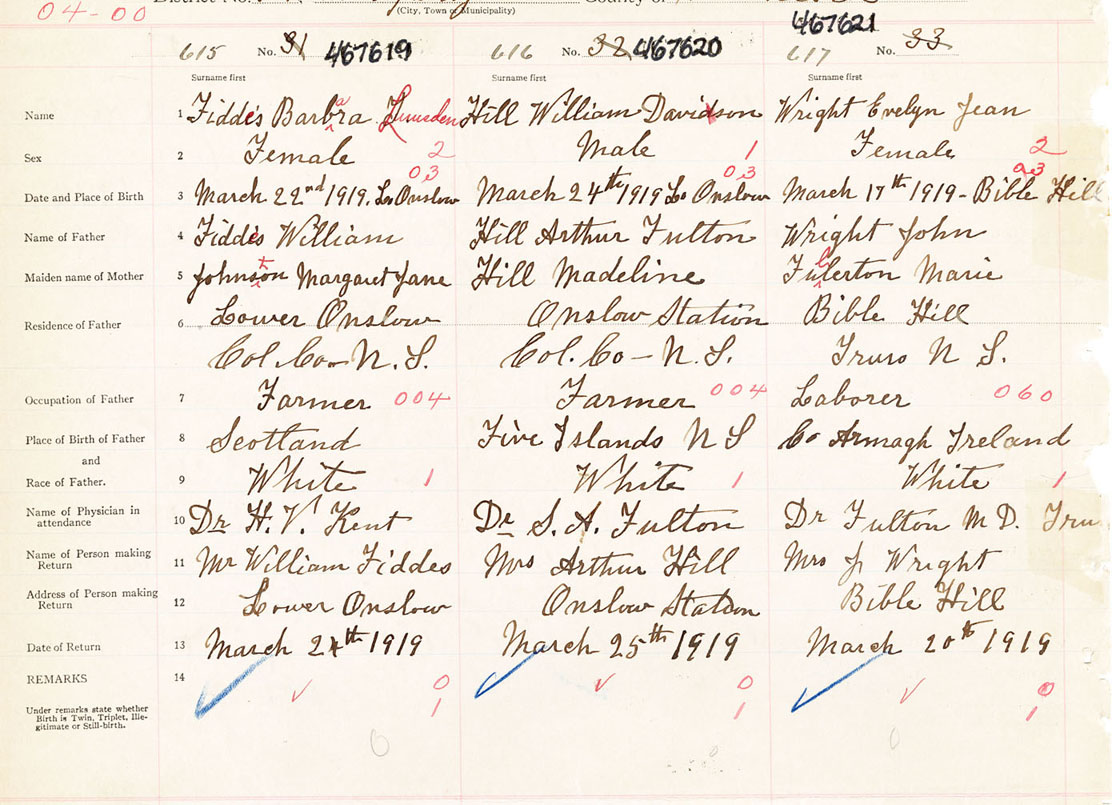 04-00
District No.
(City, Town or Municipality)
County of
615 No. 31 467619
616 No. 32 467620
617 No. 33 467621
Surname first Surname first Surname first
Name 1 Fiddes Barbara Lumsden Hill William Davidson Wright Evelyn Jean
Sex 2 Female 2 Male 1 Female 2
03 03 03
Date and Place of Birth 3 March 22nd 1919. Lo Onslow March 24th 1919 Lo Onslow March 17th 1919 - Bible Hill
Name of Father 4 Fiddes William Hill Arthur Fulton Wright John
Maiden name of Mother 5 Johnston Margaret Jane Hill Madeline Fullerton Marie
Residence of Father 6 Lower Onslow Onslow Station Bible Hill
Col. Co - N. S. Col. Co - N. S. Truro N S.
Occupation of Father 7 Farmer 004 Farmer 004 Laborer 060
Place of Birth of Father 8 Scotland Five Islands N S Co Armagh Ireland
and
Race of Father. 9 White 1 White 1 White 1
Name of Physician in
attendance 10 Dr H. V. Kent Dr S. A. Fulton Dr Fulton M D. Tru
Name of Person making
Return 11 Mr William Fiddes Mrs Arthur Hill Mrs J Wright
Address of Person making
Return 12 Lower Onslow Onslow Station Bible Hill
Date of Return 13 March 24th 1919 March 25th 1919 March 20th 1919
REMARKS 14 0 0 0
Under remarks state whether
Birth is Twin, Triplet, Ille-
gitimate or Still-birth. 1 1 1